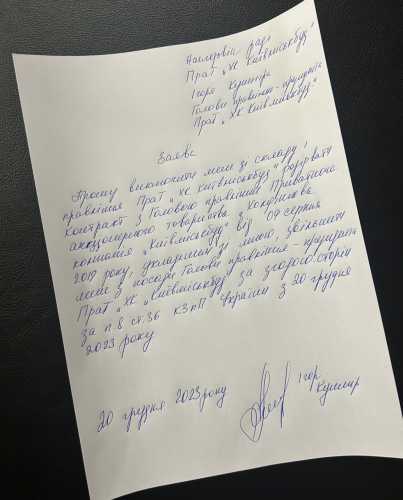 Наглядова рада
ПрАТ „ХК Київміськбуд"
Ігоря Кушніра
Голови правління-президента
ПрАТ „ХК Київміськбуд"
Заява
Прошу виключити мене зі складу
правління ПрАТ „ХК Київміськбуд", розірвати
контракт з Головою правління Приватного
акціонерного товариства „Холдингова
компанія „Київміськбуд" від 09 серпня
2017 року, укладений зі мною, звільнити
мене з посади Голови правління-президента
ПрАТ „ХК „Київміськбуд" за згодою сторін
за п.8 ст.36 КЗпП України з 20 грудня
2023 року
20 грудня 2023 року
Ігор
Кушнір